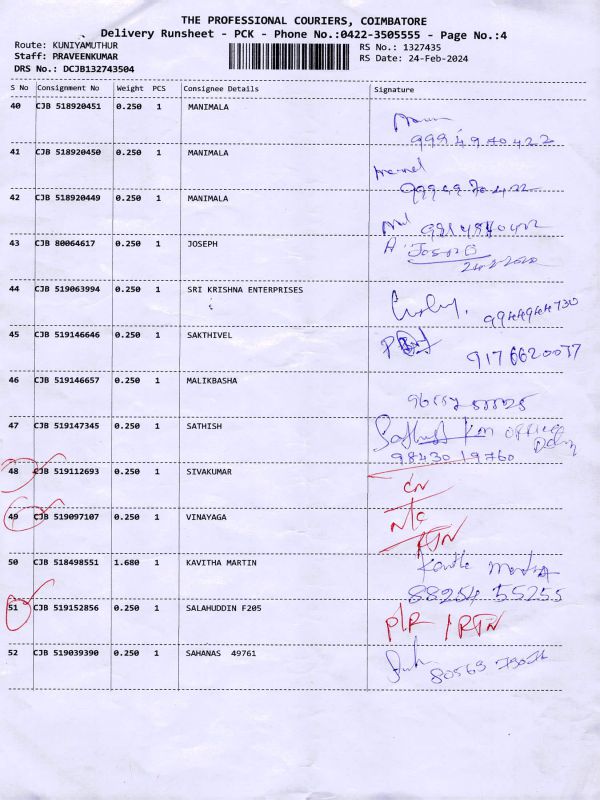 THE PROFESSIONAL COURIERS, COIMBATORE
Delivery Runsheet - PCK - Phone No.:0422-3505555 - Page No.:4
Route: KUNIYAMUTHUR RS No.: 1327435
Staff: PRAVEENKUMAR RS Date: 24-Feb-2024
DRS No.: DCJB132743504
S No Consignment No Weight PCS Consignee Details Signature
40 CJB 518920451 0.250 1 MANIMALA
9994970422
41 CJB 518920450 0.250 1 MANIMALA
42 CJB 518920449 0.250 1 MANIMALA
43 CJB 80064617 0.250 1 JOSEPH
44 CJB 519063994 0.250 1 SRI KRISHNA ENTERPRISES
9944944730
45 CJB 519146646 0.250 1 SAKTHIVEL
9176620077
46 CJB 519146657 0.250 1 MALIKBASHA
47 CJB 519147345 0.250 1 SATHISH
98430 19760
48 CJB 519112693 0.250 1 SIVAKUMAR
49 CJB 519097107 0.250 1 VINAYAGA
RTN
50 CJB 518498551 1.680 1 KAVITHA MARTIN
88254 55255
51 CJB 519152856 0.250 1 SALAHUDDIN F205
RTN
52 CJB 519039390 0.250 1 SAHANAS 49761